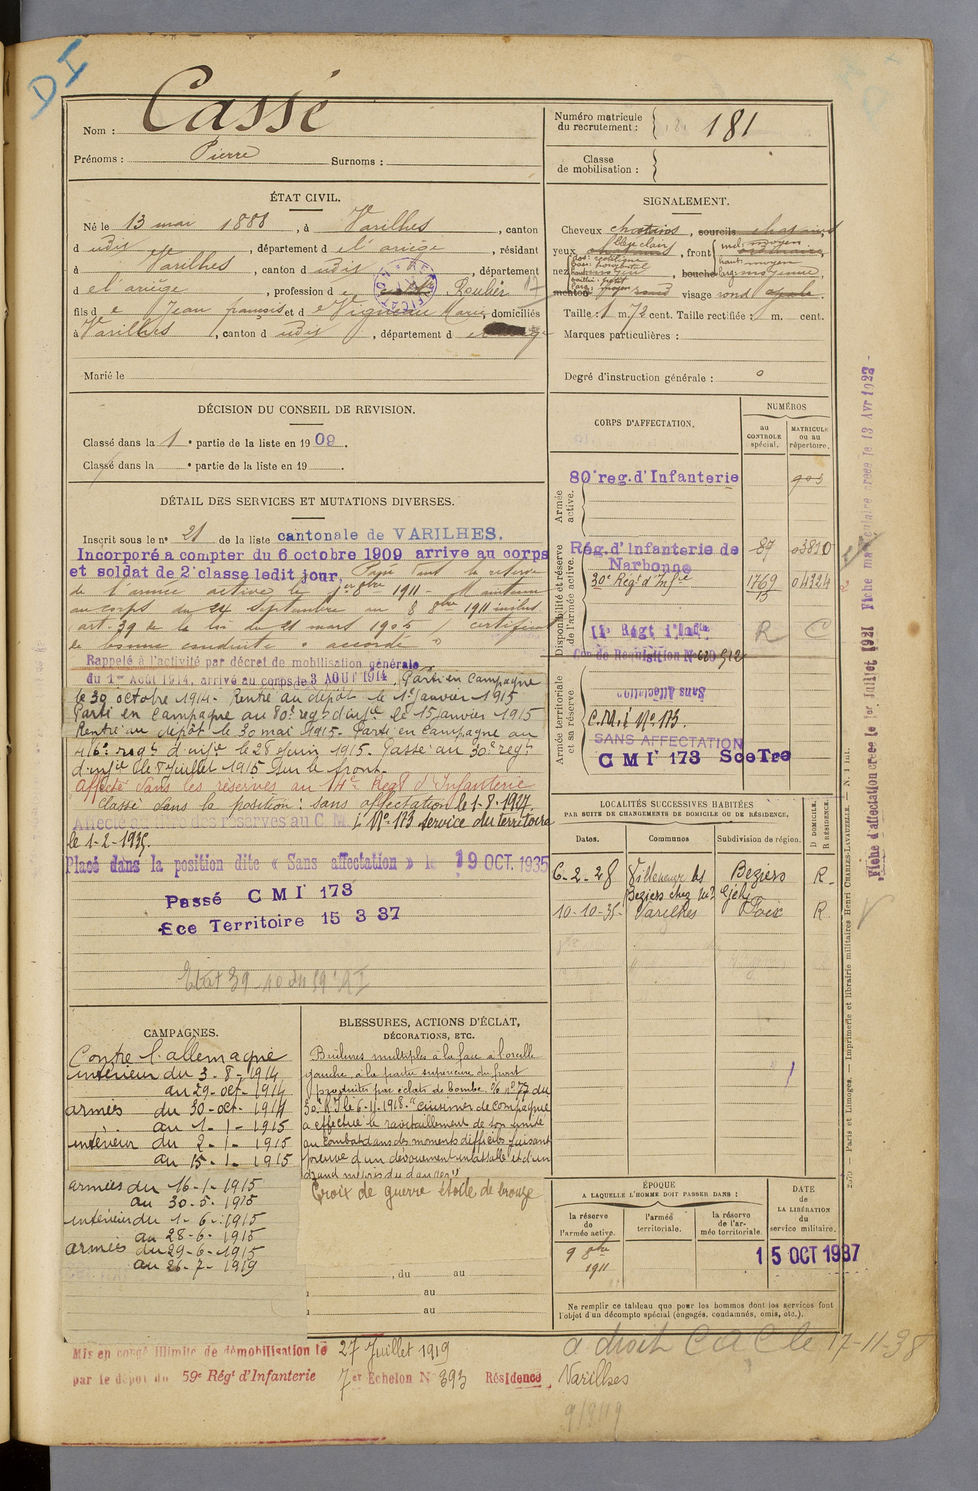 DI
Nom : Cassé
Prénoms : Pierre Surnoms :
Numéro matricule du recrutement : 181
Classe de mobilisation :
ÉTAT CIVIL.
Né le 13 mai 1888, à Varilhes, canton
d udit, département d e l'ariège, résidant
à Varilhes, canton d udit, département
d e l'ariège, profession d e Roulier
fils d e Jean françois et d e Vigneau Marie, domiciliés
à Varilhes, canton d udit, département d
Marié le
SIGNALEMENT.
Cheveux chatains, sourcils chatains
yeux bleu clair, front incl: moyen
haut: moyen
nez dos: rectiligne
base: horizontal
haut: moyen
saillie: petit
larg: moyen
bouche larg: moyenne,
menton rond visage rond ovale.
Taille : 1 m. 72 cent. Taille rectifiée : m. cent.
Marques particulières :
Degré d'instruction générale : 0
DÉCISION DU CONSEIL DE REVISION.
Classé dans la 1e partie de la liste en 1909.
Classé dans la e partie de la liste en 19
DÉTAIL DES SERVICES ET MUTATIONS DIVERSES.
Inscrit sous le n° 21 de la liste cantonale de VARILHES.
Incorporé a compter du 6 octobre 1909 arrive au corps
et soldat de 2e classe ledit jour, Passé dans la réserve
de l'armée active le 1er 8bre 1911 - Maintenu
au corps du 24 septembre au 8 8bre 1911 inclus
(art. 39 de la loi du 21 mars 1905) certificat
de bonne conduite "accordé"
Rappelé à l'activité par décret de mobilisation générale
du 1er Août 1914, arrivé au corps le 3 AOUT 1914. Parti en Campagne
le 30 octobre 1914. Rentré au dépôt le 1er janvier 1915
Parti en Campagne au 80e regt d'infie le 15 janvier 1915
Rentré au dépôt le 30 mai 1915. Parti en Campagne au
416e regt d'infie le 28 juin 1915. Passé au 30e regt
d'infie le 8 juillet 1915 sur le front.
Affecté dans les réserves au 14e Regt d'Infanterie
Classé dans la position : sans affectation le 1-8-1924.
Affecté des réserves au C.M. I. N° 173 service du territoire
le 1-2-1935.
Placé dans la position dite « Sans affectation » le 19 OCT. 1935
Passé C M I 173
Sce Territoire 15 3 37
CORPS D'AFFECTATION.
NUMÉROS
au CONTROLE spécial.
MATRICULE ou au répertoire.
Armée active.
80e reg. d'Infanterie 903
Disponibilité et réserve de l'armée active.
Rég. d'Infanterie de Narbonne 89 03810
30e Régt d'Infie 1769/15 04324
R C
Con de Requisition N°
Armée territoriale et sa réserve
Sans Affectation
C.M.I N° 173.
SANS AFFECTATION
C M I 173 Sce Tre
LOCALITÉS SUCCESSIVES HABITÉES
PAR SUITE DE CHANGEMENTS DE DOMICILE OU DE RÉSIDENCE.
D DOMICILE. R RÉSIDENCE.
Dates. Communes Subdivision de région.
6-2-28 Villeneuve les Beziers chez Mr Béziers R.
10-10-35 Varilhes Foix R
CAMPAGNES.
Contre l'allemagne
intérieur du 3-8-1914
au 29-oct-1914
armées du 30-oct-1914
au 1-1-1915
intérieur du 2-1-1915
au 15-1-1915
armées du 16-1-1915
au 30-5-1915
intérieur du 1-6-1915
au 28-6-1915
armées du 29-6-1915
au 26-7-1919
BLESSURES, ACTIONS D'ÉCLAT,
DÉCORATIONS, ETC.
Brûlures multiples à la face à l'oreille
gauche à la partie supérieure du front
produites par éclats de bombe.
30e R.I. le 6-11-1918. "cuisinier de compagnie
a effectué le ravitaillement de son unité
au combat dans des moments difficiles faisant
preuve d'un dévouement inlassable et d'un
grand mépris du danger"
Croix de guerre étoile de bronze
, du au
au
au
ÉPOQUE
A LAQUELLE L'HOMME DOIT PASSER DANS :
la réserve de l'armée active.
l'armée territoriale.
la réserve de l'armée territoriale.
DATE de LA LIBÉRATION du service militaire.
9 8bre 1911
15 OCT 1937
Ne remplir ce tableau que pour les hommes dont les services font
l'objet d'un décompte spécial (engagés, condamnés, omis, etc.).
Mis en congé illimité de démobilisation le 27 Juillet 1919
par le dépôt du 59e Régt d'Infanterie 7er Echelon N° 393 Résidence Varilhes
a droit C d C le 17-11-38
Fiche d'affectation créée le 1er Juillet 1921 Fiche matriculaire créée le 13 Avr 1923
Paris et Limoges. — Imprimerie et librairie militaires Henri CHARLES-LAVAUZELLE.